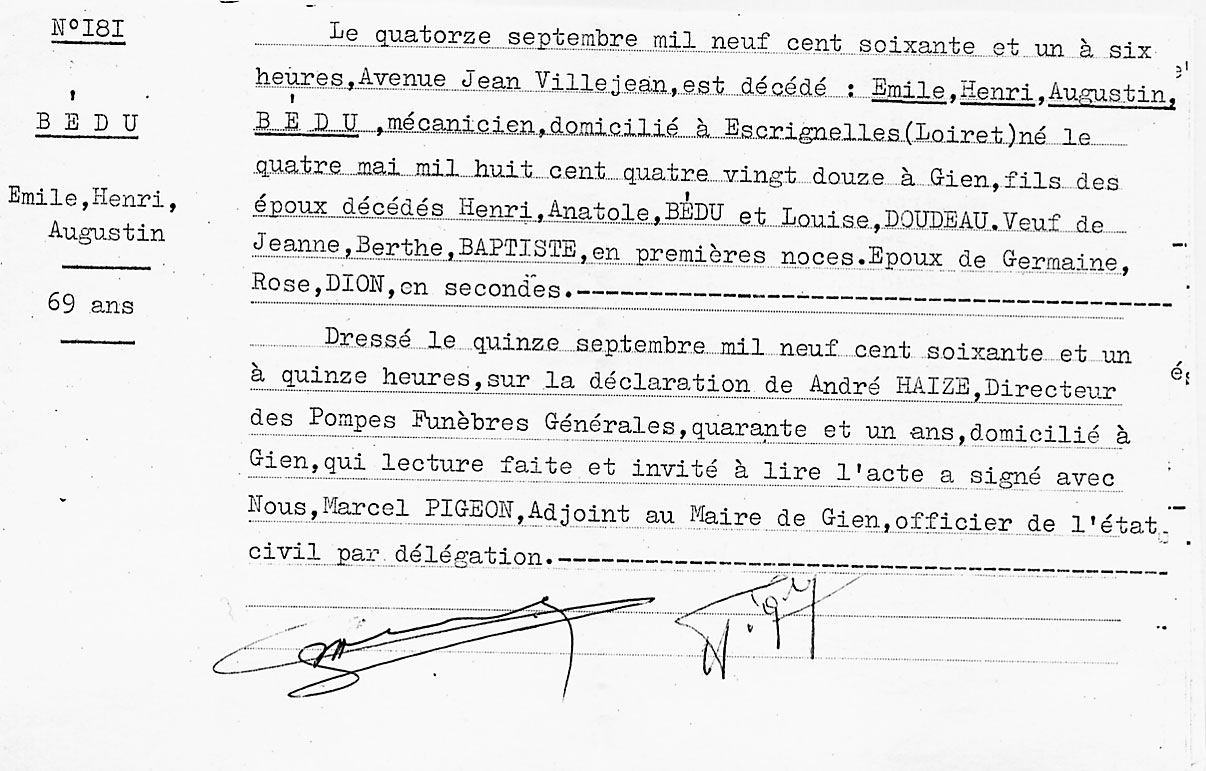 N°I8I
BÉDU
Emile,Henri,
Augustin
69 ans
Le quatorze septembre mil neuf cent soixante et un à six
heures,Avenue Jean Villejean,est décédé : Emile,Henri,Augustin,
BÉDU ,mécanicien,domicilié à Escrignelles(Loiret)né le
quatre mai mil huit cent quatre vingt douze à Gien,fils des
époux décédés Henri,Anatole,BÉDU et Louise,DOUDEAU.Veuf de
Jeanne,Berthe,BAPTISTE,en premières noces.Epoux de Germaine,
Rose,DION,en secondes.
Dressé le quinze septembre mil neuf cent soixante et un
à quinze heures,sur la déclaration de André HAIZE,Directeur
des Pompes Funèbres Générales,quarante et un ans,domicilié à
Gien,qui lecture faite et invité à lire l'acte a signé avec
Nous,Marcel PIGEON,Adjoint au Maire de Gien,officier de l'état
civil par délégation.